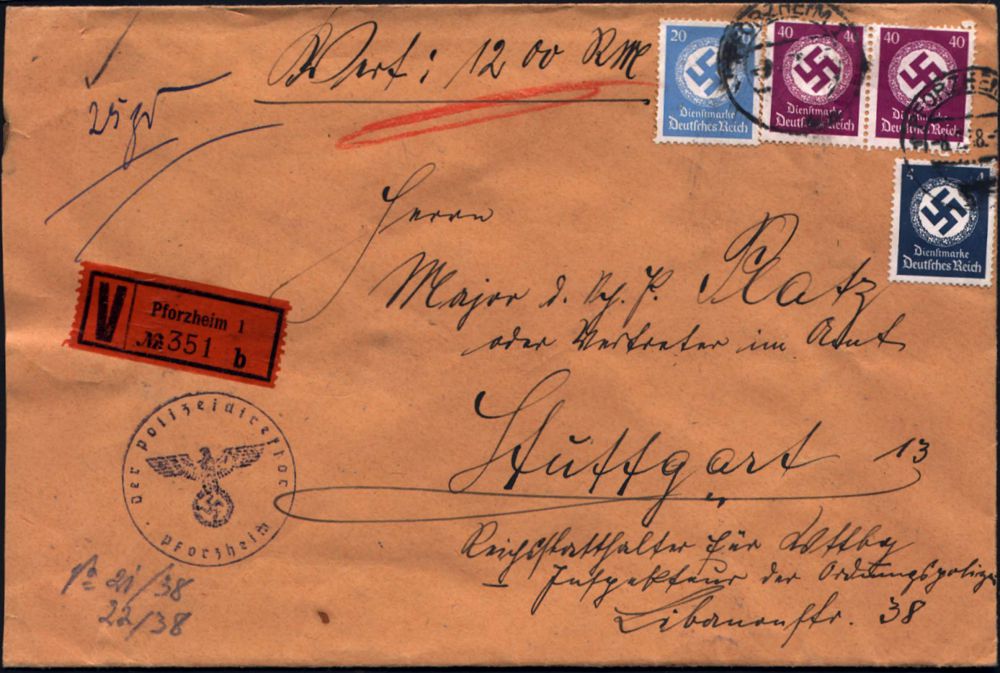 Wert: 1200 RM
25 gr
20
40 40
40 40
Dienstmarke
Deutsches Reich
Dienstmarke
Deutsches Reich
Dienstmarke
Deutsches Reich
PFORZHEIM
PFORZHEIM
4
Dienstmarke
Deutsches Reich
Herrn
Major d. Sch. P. Platz
oder Vertreter im Amt
Stuttgart 13
Reichsstatthalter für Wttbg
Inspekteur der Ordnungspolizei
Libanonstr. 38
V
Pforzheim 1
№ 351 b
Der Polizeidirektor
Pforzheim
21/38
22/38